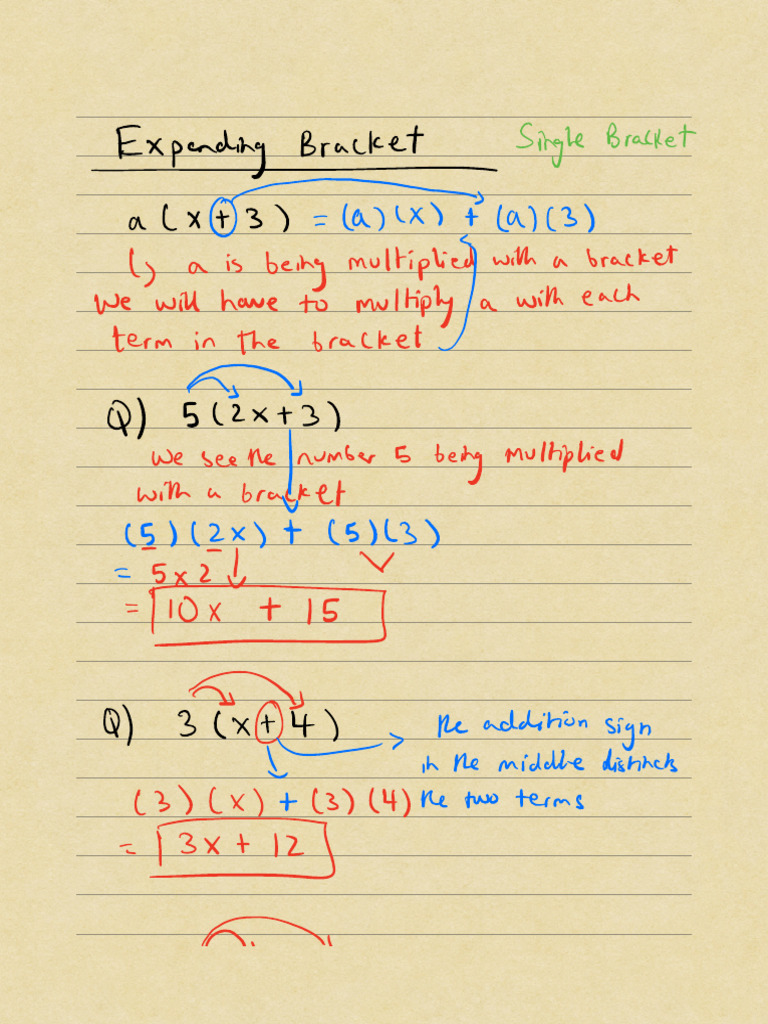 Expanding Bracket
Single Bracket
a (x + 3) = (a)(x) + (a)(3)
↳ a is being multiplied with a bracket
we will have to multiply a with each
term in the bracket
Q) 5(2x+3)
we see the number 5 being multiplied
with a bracket
(5)(2x) + (5)(3)
= 5x2
= 10x + 15
Q) 3(x+4)
the addition sign
in the middle distincts
(3)(x) + (3)(4) the two terms
= 3x + 12